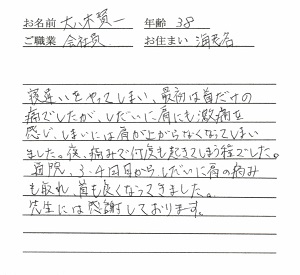 お名前 大八木賢一 年齢 38
ご職業 会社員 お住まい 海老名
寝違いをやってしまい、最初は首だけの
痛でしたが、しだいに肩にも激痛を
感じ、しまいには肩が上がらなくなってしまい
ました。夜、痛みで何度も起きてしまう程でした。
通院、3、4回目からしだいに肩の痛み
も取れ、首も良くなってきました。
先生には感謝しております。